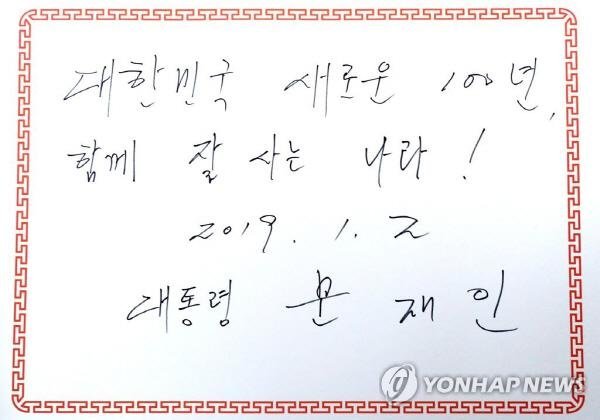 대한민국 새로운 100년,
함께 잘 사는 나라!
2019. 1. 2
대통령 문재인
YONHAP NEWS